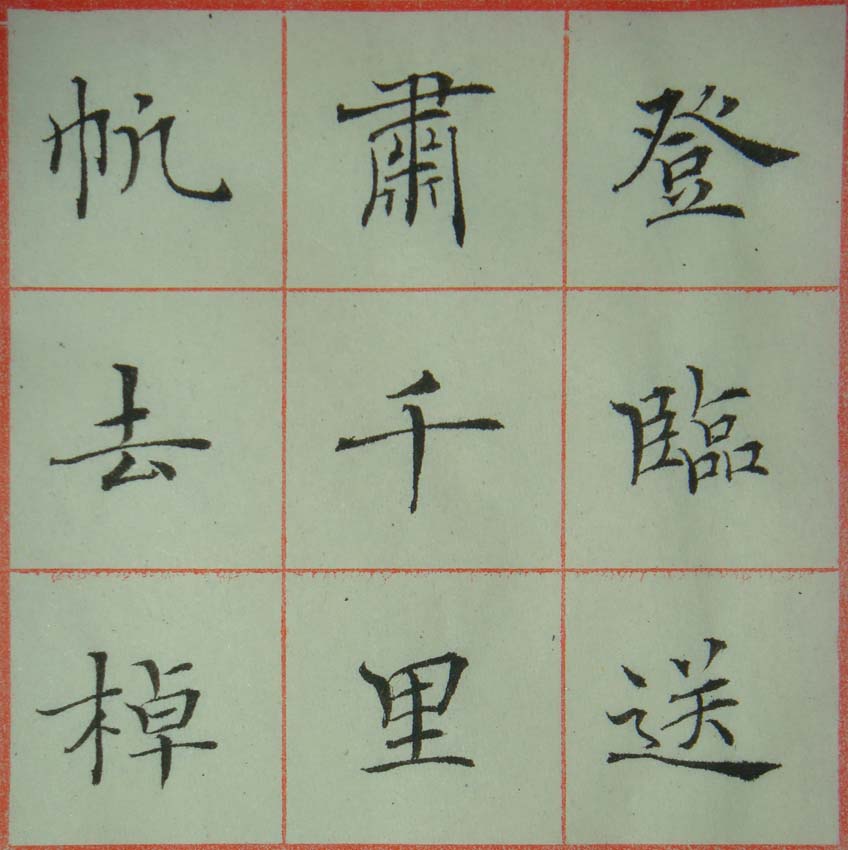 登臨送
肅千里
帆去棹